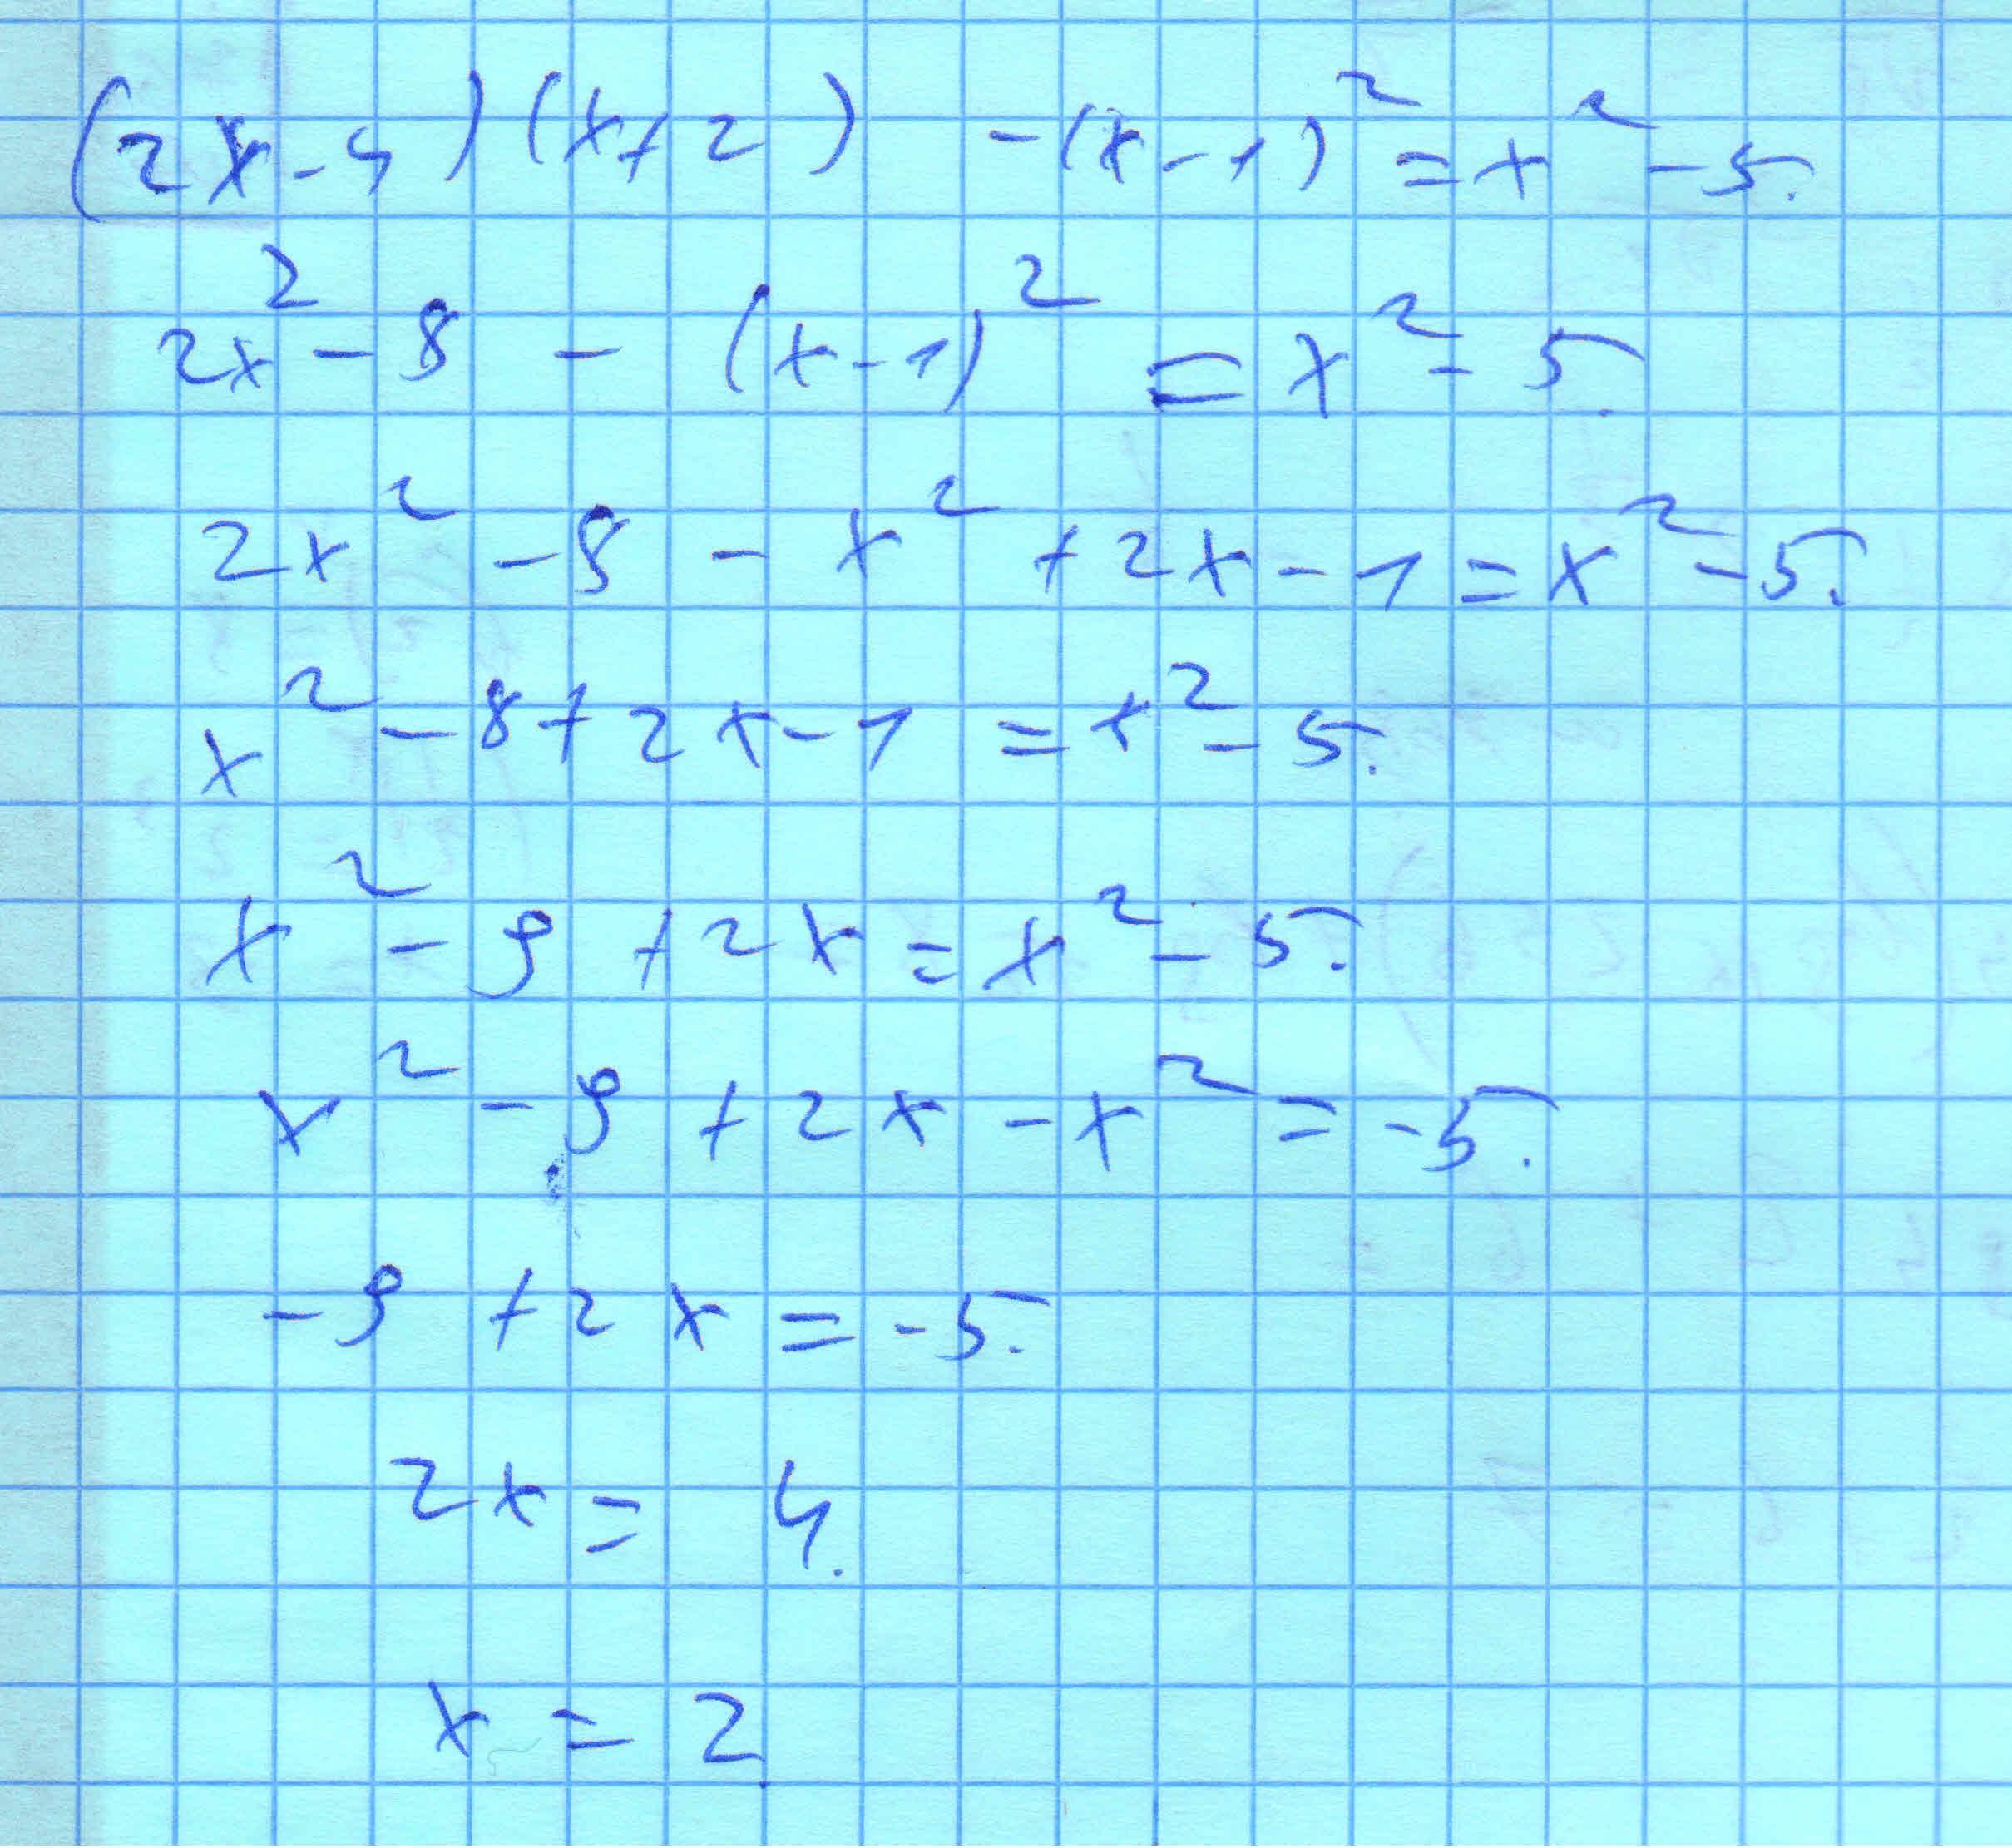 (2x-4)(x+2) -(x-1)² = x² - 5.
2x² - 8 - (x-1)² = x² - 5.
2x² - 8 - x² + 2x - 1 = x² - 5.
x² - 8 + 2x - 1 = x² - 5.
x² - 9 + 2x = x² - 5.
x² - 9 + 2x - x² = -5.
-9 + 2x = -5.
2x = 4.
x = 2.